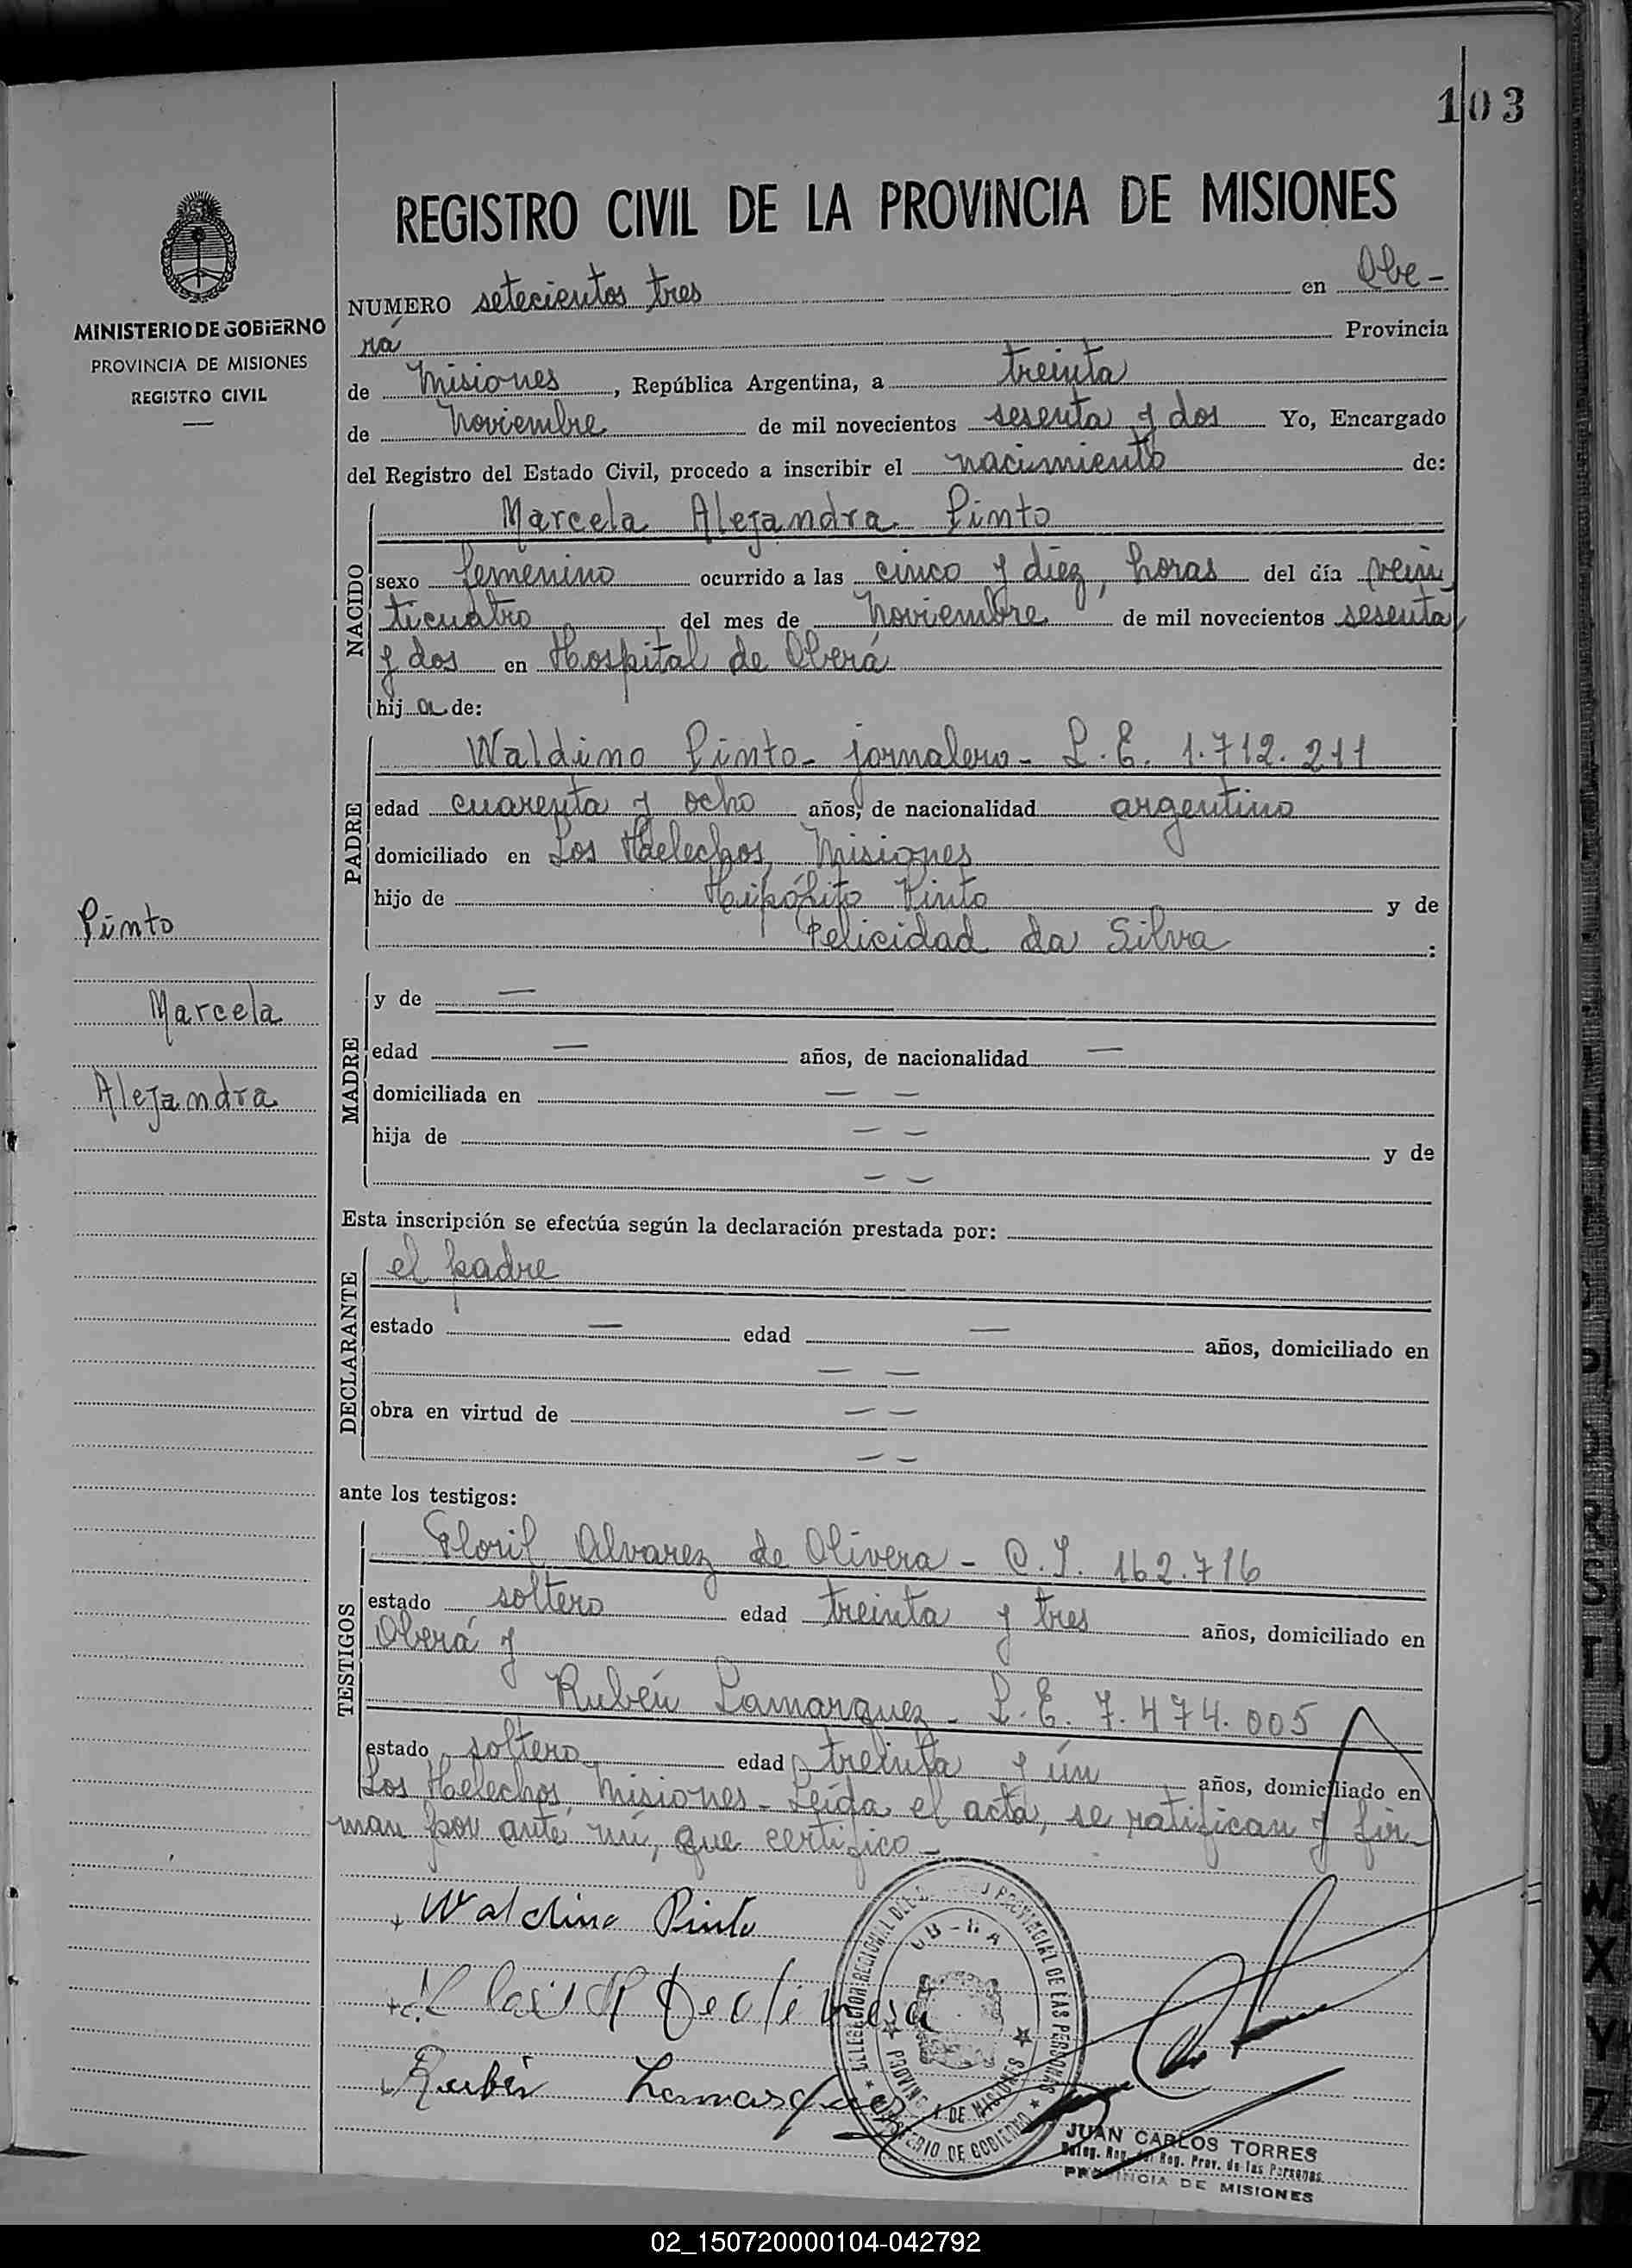 103
REGISTRO CIVIL DE LA PROVINCIA DE MISIONES
MINISTERIO DE GOBIERNO
PROVINCIA DE MISIONES
REGISTRO CIVIL
NUMERO setecientos tres en Obe-
rá Provincia
de Misiones, República Argentina, a treinta
de Noviembre de mil novecientos sesenta y dos Yo, Encargado
del Registro del Estado Civil, procedo a inscribir el nacimiento de:
NACIDO
Marcela Alejandra Pinto
sexo femenino ocurrido a las cinco y diez, horas del día vein
ticuatro del mes de Noviembre de mil novecientos sesenta
y dos en Hospital de Oberá
hij a de:
PADRE
Waldino Pinto - jornalero - L.E. 1.712.211
edad cuarenta y ocho años, de nacionalidad argentino
domiciliado en Los Helechos, Misiones
hijo de Hipólito Pinto y de
Felicidad da Silva :
Pinto
Marcela
Alejandra
MADRE
y de —
edad — años, de nacionalidad —
domiciliada en — —
hija de — — y de
— —
Esta inscripción se efectúa según la declaración prestada por:
DECLARANTE
el padre
estado — edad — años, domiciliado en
— —
obra en virtud de — —
— —
ante los testigos:
TESTIGOS
Floril Alvarez de Olivera - C.I. 162.716
estado soltero edad treinta y tres años, domiciliado en
Oberá y
Rubén Lamarquez - L.E. 7.474.005
estado soltero edad treinta y ún años, domiciliado en
Los Helechos, Misiones - Leída el acta, se ratifican y fir-
man por ante mí, que certifico -
Waldino Pinto
de olivera
Rubén Lamarquez
DELEGACION REGIONAL DEL PROVINCIAL DE LAS PERSONAS
OBERA
PROVINCIA DE MISIONES
MINISTERIO DE GOBIERNO
JUAN CARLOS TORRES
Deleg. Reg. del Reg. Prov. de las Personas
PROVINCIA DE MISIONES
S
T
U
V
W
X
Y
Z
02_150720000104-042792